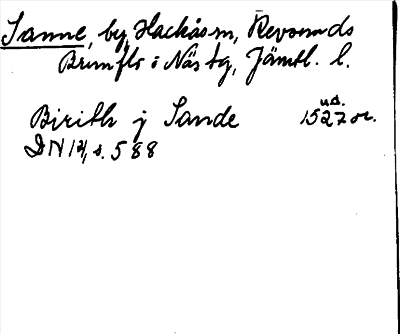 Sanne, by, Hackås sn, Revsunds
Brunflo o Näs tg, Jämtl. l.
Birith j Sande 1527 or.
u.d.
DN 14, s. 588